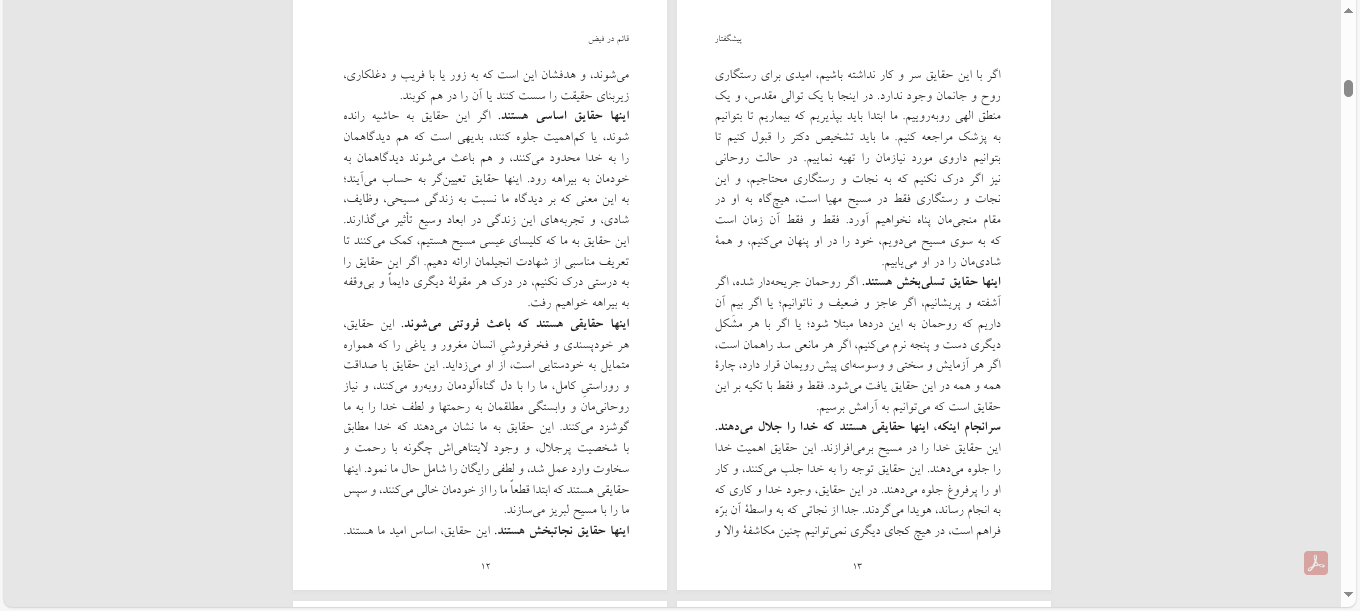 قائم در فیض
می‌شوند، و هدفشان این است که به زور یا با فریب و دغلکاری،
زیربنای حقیقت را سست کنند یا آن را در هم کوبند.
اینها حقایق اساسی هستند. اگر این حقایق به حاشیه رانده
شوند، یا کم‌اهمیت جلوه کنند، بدیهی است که هم دیدگاهمان
را به خدا محدود می‌کنند، و هم باعث می‌شوند دیدگاهمان به
خودمان به بیراهه رود. اینها حقایق تعیین‌گر به حساب می‌آیند؛
به این معنی که بر دیدگاه ما نسبت به زندگی مسیحی، وظایف،
شادی، و تجربه‌های این زندگی در ابعاد وسیع تأثیر می‌گذارند.
این حقایق به ما که کلیسای عیسی مسیح هستیم، کمک می‌کنند تا
تعریف مناسبی از شهادت انجیلمان ارائه دهیم. اگر این حقایق را
به درستی درک نکنیم، در درک هر مقولهٔ دیگری دایماً و بی‌وقفه
به بیراهه خواهیم رفت.
اینها حقایقی هستند که باعث فروتنی می‌شوند. این حقایق،
هر خودپسندی و فخرفروشیِ انسان مغرور و یاغی را که همواره
متمایل به خودستایی است، از او می‌زداید. این حقایق با صداقت
و روراستیِ کامل، ما را با دل گناه‌آلودمان روبه‌رو می‌کنند، و نیاز
روحانی‌مان و وابستگی مطلقمان به رحمتها و لطف خدا را به ما
گوشزد می‌کنند. این حقایق به ما نشان می‌دهند که خدا مطابق
با شخصیت پرجلال، و وجود لایتناهی‌اش چگونه با رحمت و
سخاوت وارد عمل شد، و لطفی رایگان را شامل حال ما نمود. اینها
حقایقی هستند که ابتدا قطعاً ما را از خودمان خالی می‌کنند، و سپس
ما را با مسیح لبریز می‌سازند.
اینها حقایق نجاتبخش هستند. این حقایق، اساس امید ما هستند.
۱۲
پیشگفتار
اگر با این حقایق سر و کار نداشته باشیم، امیدی برای رستگاری
روح و جانمان وجود ندارد. در اینجا با یک توالی مقدس، و یک
منطق الهی روبه‌روییم. ما ابتدا باید بپذیریم که بیماریم تا بتوانیم
به پزشک مراجعه کنیم. ما باید تشخیص دکتر را قبول کنیم تا
بتوانیم داروی مورد نیازمان را تهیه نماییم. در حالت روحانی
نیز اگر درک نکنیم که به نجات و رستگاری محتاجیم، و این
نجات و رستگاری فقط در مسیح مهیا است، هیچ‌گاه به او در
مقام منجی‌مان پناه نخواهیم آورد. فقط و فقط آن زمان است
که به سوی مسیح می‌دویم، خود را در او پنهان می‌کنیم، و همهٔ
شادی‌مان را در او می‌یابیم.
اینها حقایق تسلی‌بخش هستند. اگر روحمان جریحه‌دار شده، اگر
آشفته و پریشانیم، اگر عاجز و ضعیف و ناتوانیم؛ یا اگر بیم آن
داریم که روحمان به این دردها مبتلا شود؛ یا اگر با هر مشکل
دیگری دست و پنجه نرم می‌کنیم، اگر هر مانعی سد راهمان است،
اگر هر آزمایش و سختی و وسوسه‌ای پیش رویمان قرار دارد، چارهٔ
همه و همه در این حقایق یافت می‌شود. فقط و فقط با تکیه بر این
حقایق است که می‌توانیم به آرامش برسیم.
سرانجام اینکه، اینها حقایقی هستند که خدا را جلال می‌دهند.
این حقایق خدا را در مسیح برمی‌افرازند. این حقایق اهمیت خدا
را جلوه می‌دهند. این حقایق توجه را به خدا جلب می‌کنند، و کار
او را پرفروغ جلوه می‌دهند. در این حقایق، وجود خدا و کاری که
به انجام رساند، هویدا می‌گردند. جدا از نجاتی که به واسطهٔ آن برّه
فراهم است، در هیچ کجای دیگری نمی‌توانیم چنین مکاشفهٔ والا و
۱۳